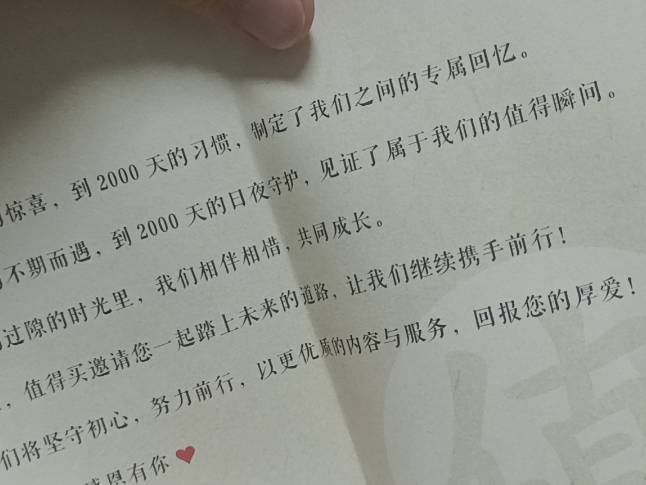 惊喜，到 2000 天的习惯，制定了我们之间的专属回忆。
不期而遇，到 2000 天的日夜守护，见证了属于我们的值得瞬间。
过隙的时光里，我们相伴相惜，共同成长。
，值得买邀请您一起踏上未来的道路，让我们继续携手前行！
们将坚守初心，努力前行，以更优质的内容与服务，回报您的厚爱！
感恩有你
值